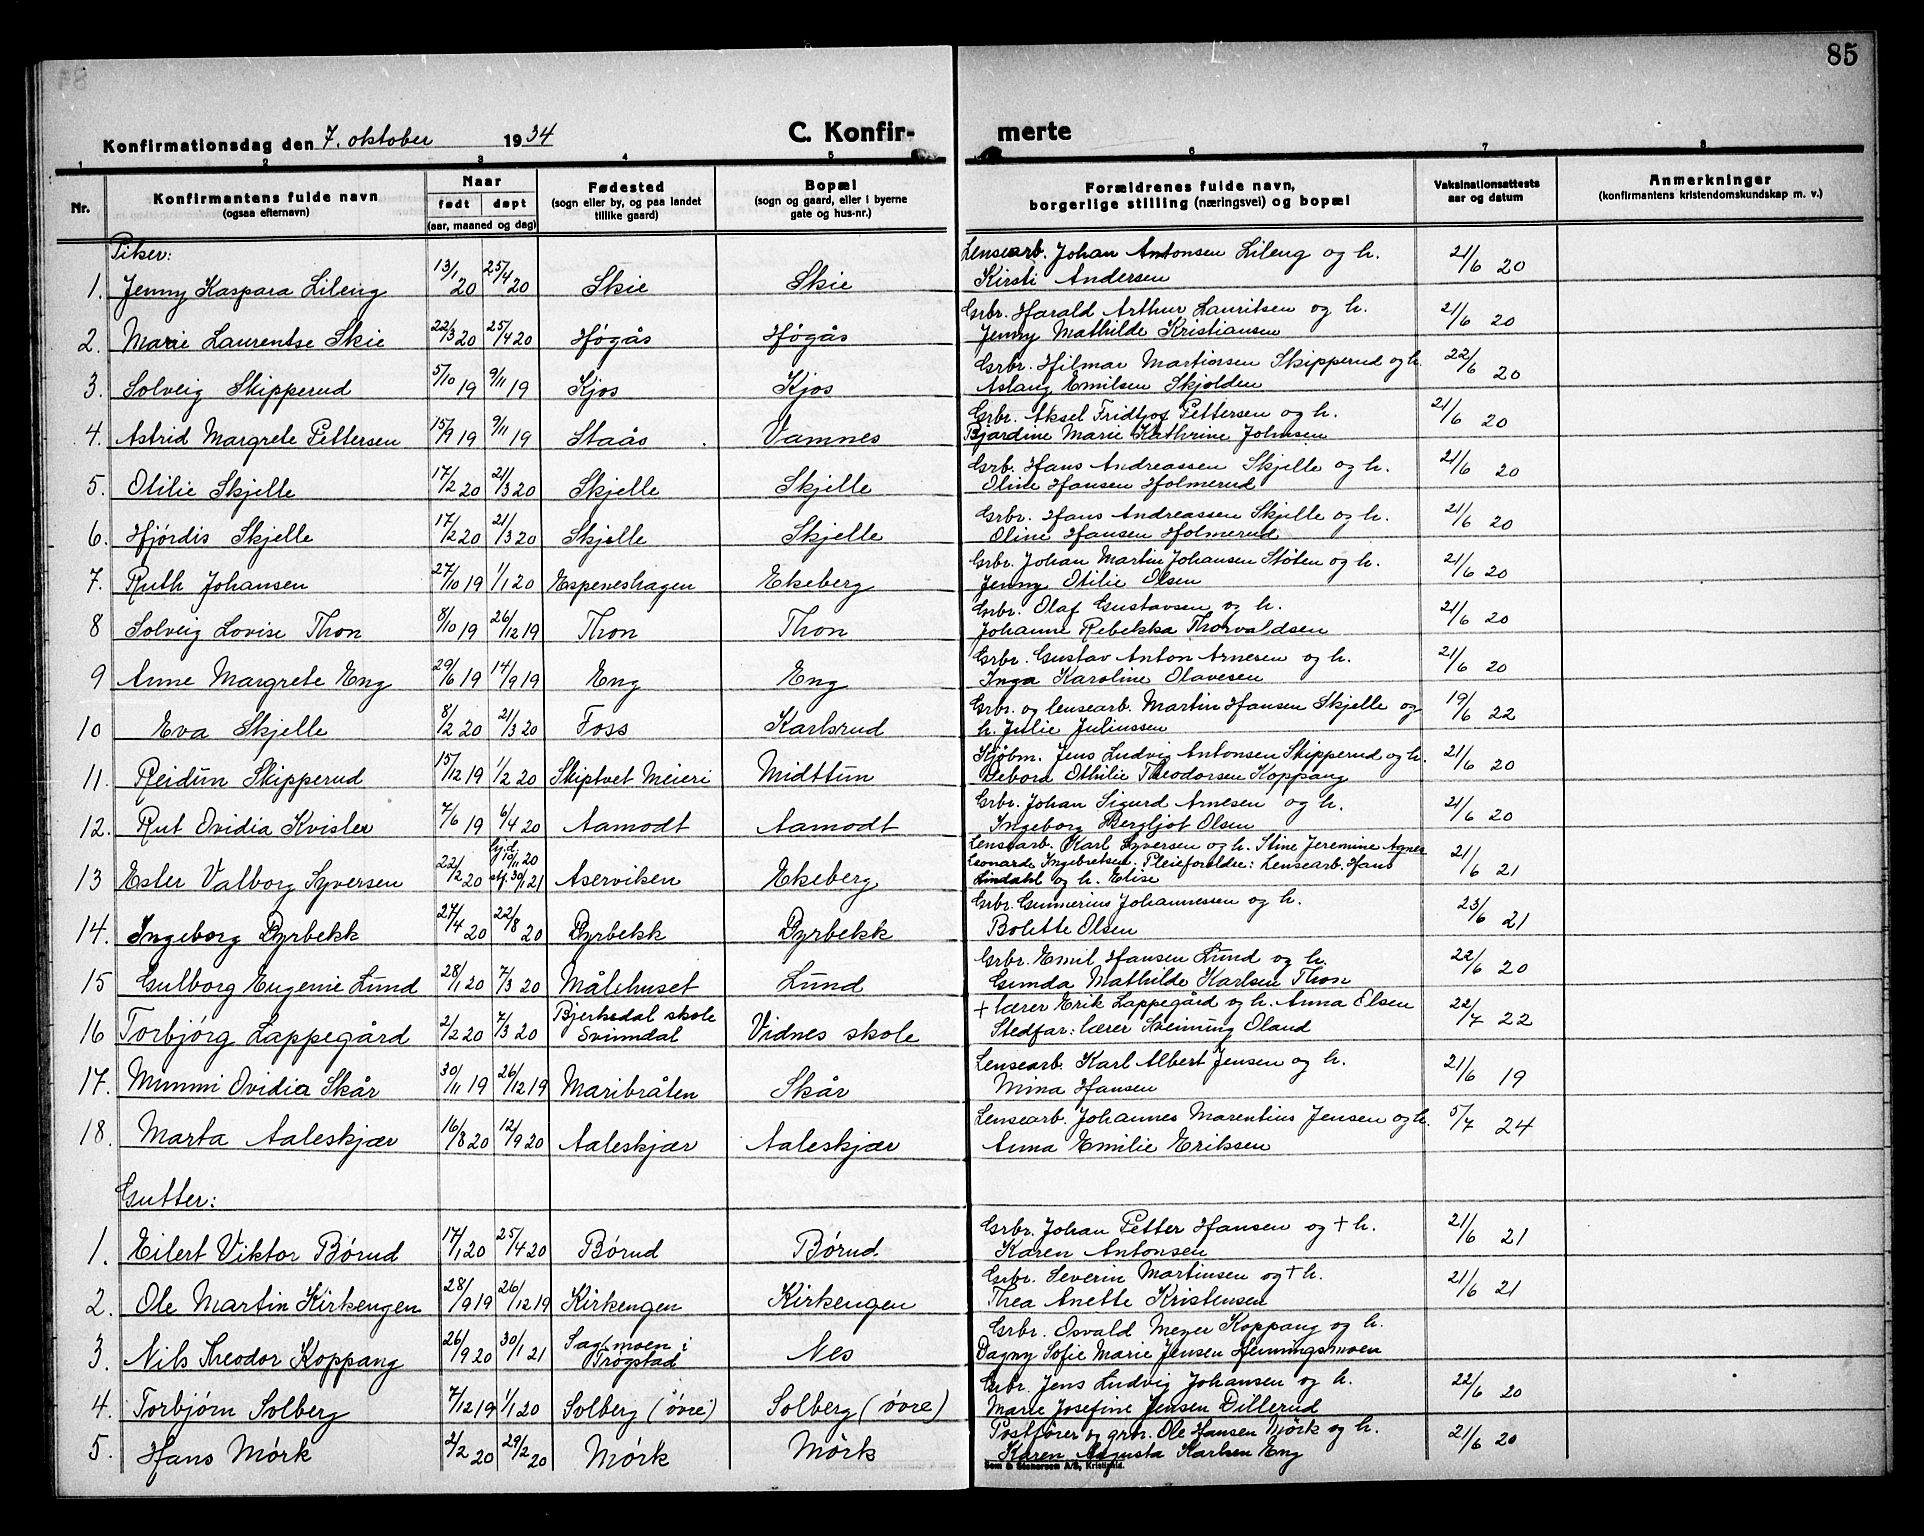 85
Konfirmationsdag den 7. oktober 1934
C. Konfir-
merte
1 2 3 4 5 6 7 8
Nr.
Konfirmantens fulde navn
(ogsaa efternavn)
Naar
født døpt
(aar, maaned og dag)
Fødested
(sogn eller by, og paa landet
tillike gaard)
Bopæl
(sogn og gaard, eller i byerne
gate og hus-nr.)
Forældrenes fulde navn,
borgerlige stilling (næringsvei) og bopæl
Vaksinationsattests
aar og datum
Anmerkninger
(konfirmantens kristendomskundskap m. v.)
Piker:
1. Jenny Kaspara Lileng 13/1 20 25/4 20 Skie Skie Lensearb. Johan Antonsen Lileng og h. 21/6 20
Kirsti Andersen
2. Marie Laurentse Skie 22/3 20 25/4 20 Høgås Høgås Grbr. Harald Arthur Lauritsen og h. 21/6 20
Jenny Mathilde Kristiansen
3. Solveig Skipperud 5/10 19 9/11 19 Kjos Kjos Grbr. Hilmar Martinsen Skipperud og h. 22/6 20
Aslaug Emilsen Skjolden
4. Astrid Margrete Pettersen 15/9 19 9/11 19 Staås Vamnes Grbr. Aksel Fridtjof Pettersen og h. 21/6 20
Bjardine Marie Kathrine Johnsen
5. Otilie Skjelle 17/2 20 21/3 20 Skjelle Skjelle Grb. Hans Andreassen Skjelle og h. 21/6 20
Oline Hansen Holmerud
6. Hjørdis Skjelle 17/2 20 21/3 20 Skjelle Skjelle Grbr. Hans Andreassen Skjelle og h. 21/6 20
Oline Hansen Holmerud
7. Ruth Johansen 27/10 19 1/1 20 Espeneshagen Ekeberg Grbr. Johan Martin Johansen Støten og h. 21/6 20
Jenny Otilie Olsen
8 Solveig Lovise Thon 8/10 19 26/12 19 Thon Thon Grbr. Olaf Gustavsen og h. 21/6 20
Johanne Rebekka Thorvaldsen
9 Anne Margrete Eng 29/6 19 14/9 19 Eng Eng Grbr. Gustav Anton Arnesen og h. 21/6 20
Inga Karoline Olavesen
10 Eva Skjelle 8/2 20 21/3 20 Foss Karlsrud Grbr. og lensearb. Martin Hansen Skjelle og 19/6 22
h. Julie Juliussen
11. Reidun Skipperud 15/12 19 1/2 20 Skiptvet Meieri Midttun Kjøbm. Jens Ludvig Antonsen Skipperud og h. 21/6 20
Debora Othilie Theodorsen Koppang
12. Rut Ovidia Kvisler 7/6 19 6/4 20 Aamodt Aamodt Grbr. Johan Sigurd Arnesen og h. 21/6 20
Ingeborg Bergljot Olsen
13 Ester Valborg Syversen 22/2 20 hj.d. 10/11 20 stf. 30/1 21 Aserviken Ekeberg Lensearb. Karl Syversen og h. Stine Jeremine Agnes 21/6 21
Leonarde Ingebretsen. Pleieforeldre: Lensearb. Hans
Lindahl og h. Elise
14. Ingeborg Dyrbekk 27/4 20 22/8 20 Dyrbekk Dyrbekk Grbr. Gunnerius Johannessen og h. 23/6 21
Bolette Olsen
15 Gulborg Eugenie Lund 28/1 20 7/3 20 Målehuset Lund Grbr. Emil Hansen Lund og h. 22/6 20
Gunda Mathilde Karlsen Thon
16 Torbjørg Lappegård 2/2 20 7/3 20 Bjerkedal skole Svinndal Vidnes skole + lærer Erik Lappegård og h. Anna Olsen 22/7 22
Stedfar: lærer Sveinung Oland
17. Mimmi Ovidia Skår 30/11 19 26/12 19 Maribråten Skår Lensearb. Karl Albert Jensen og h. 21/6 19
Mina Hansen
18. Marta Aaleskjær 16/8 20 12/9 20 Aaleskjær Aaleskjær Lensearb. Johannes Marentius Jensen og h. 5/7 24
Anna Emilie Eriksen
Gutter:
1. Eilert Viktor Børud 17/1 20 25/4 20 Børud Børud Grbr. Johan Petter Hansen og + h. 21/6 21
Karen Antonsen
2. Ole Martin Kirkengen 28/9 19 26/12 19 Kirkengen Kirkengen Grbr. Severin Martinsen og + h. 21/6 21
Thea Anette Kristensen
3. Nils Theodor Koppang 26/9 20 30/1 21 Sagsmoen i Trøgstad Nes Grbr. Osvald Meyer Koppang og h.
Dagny Sofie Marie Jensen Henningsmoen
4. Torbjørn Solberg 7/12 19 1/1 20 Solberg (øvre) Solberg (øvre) Grbr. Jens Ludvig Johansen og h. 22/6 20
Marie Josefine Jensen Dillerud
5. Hans Mørk 2/2 20 29/2 20 Mørk Mørk Postfører og grbr. Ole Hansen Mørk og h. 21/6 20
Karen Augusta Karlsen Eng
Sem & Stenersen A/S, Kristiania.